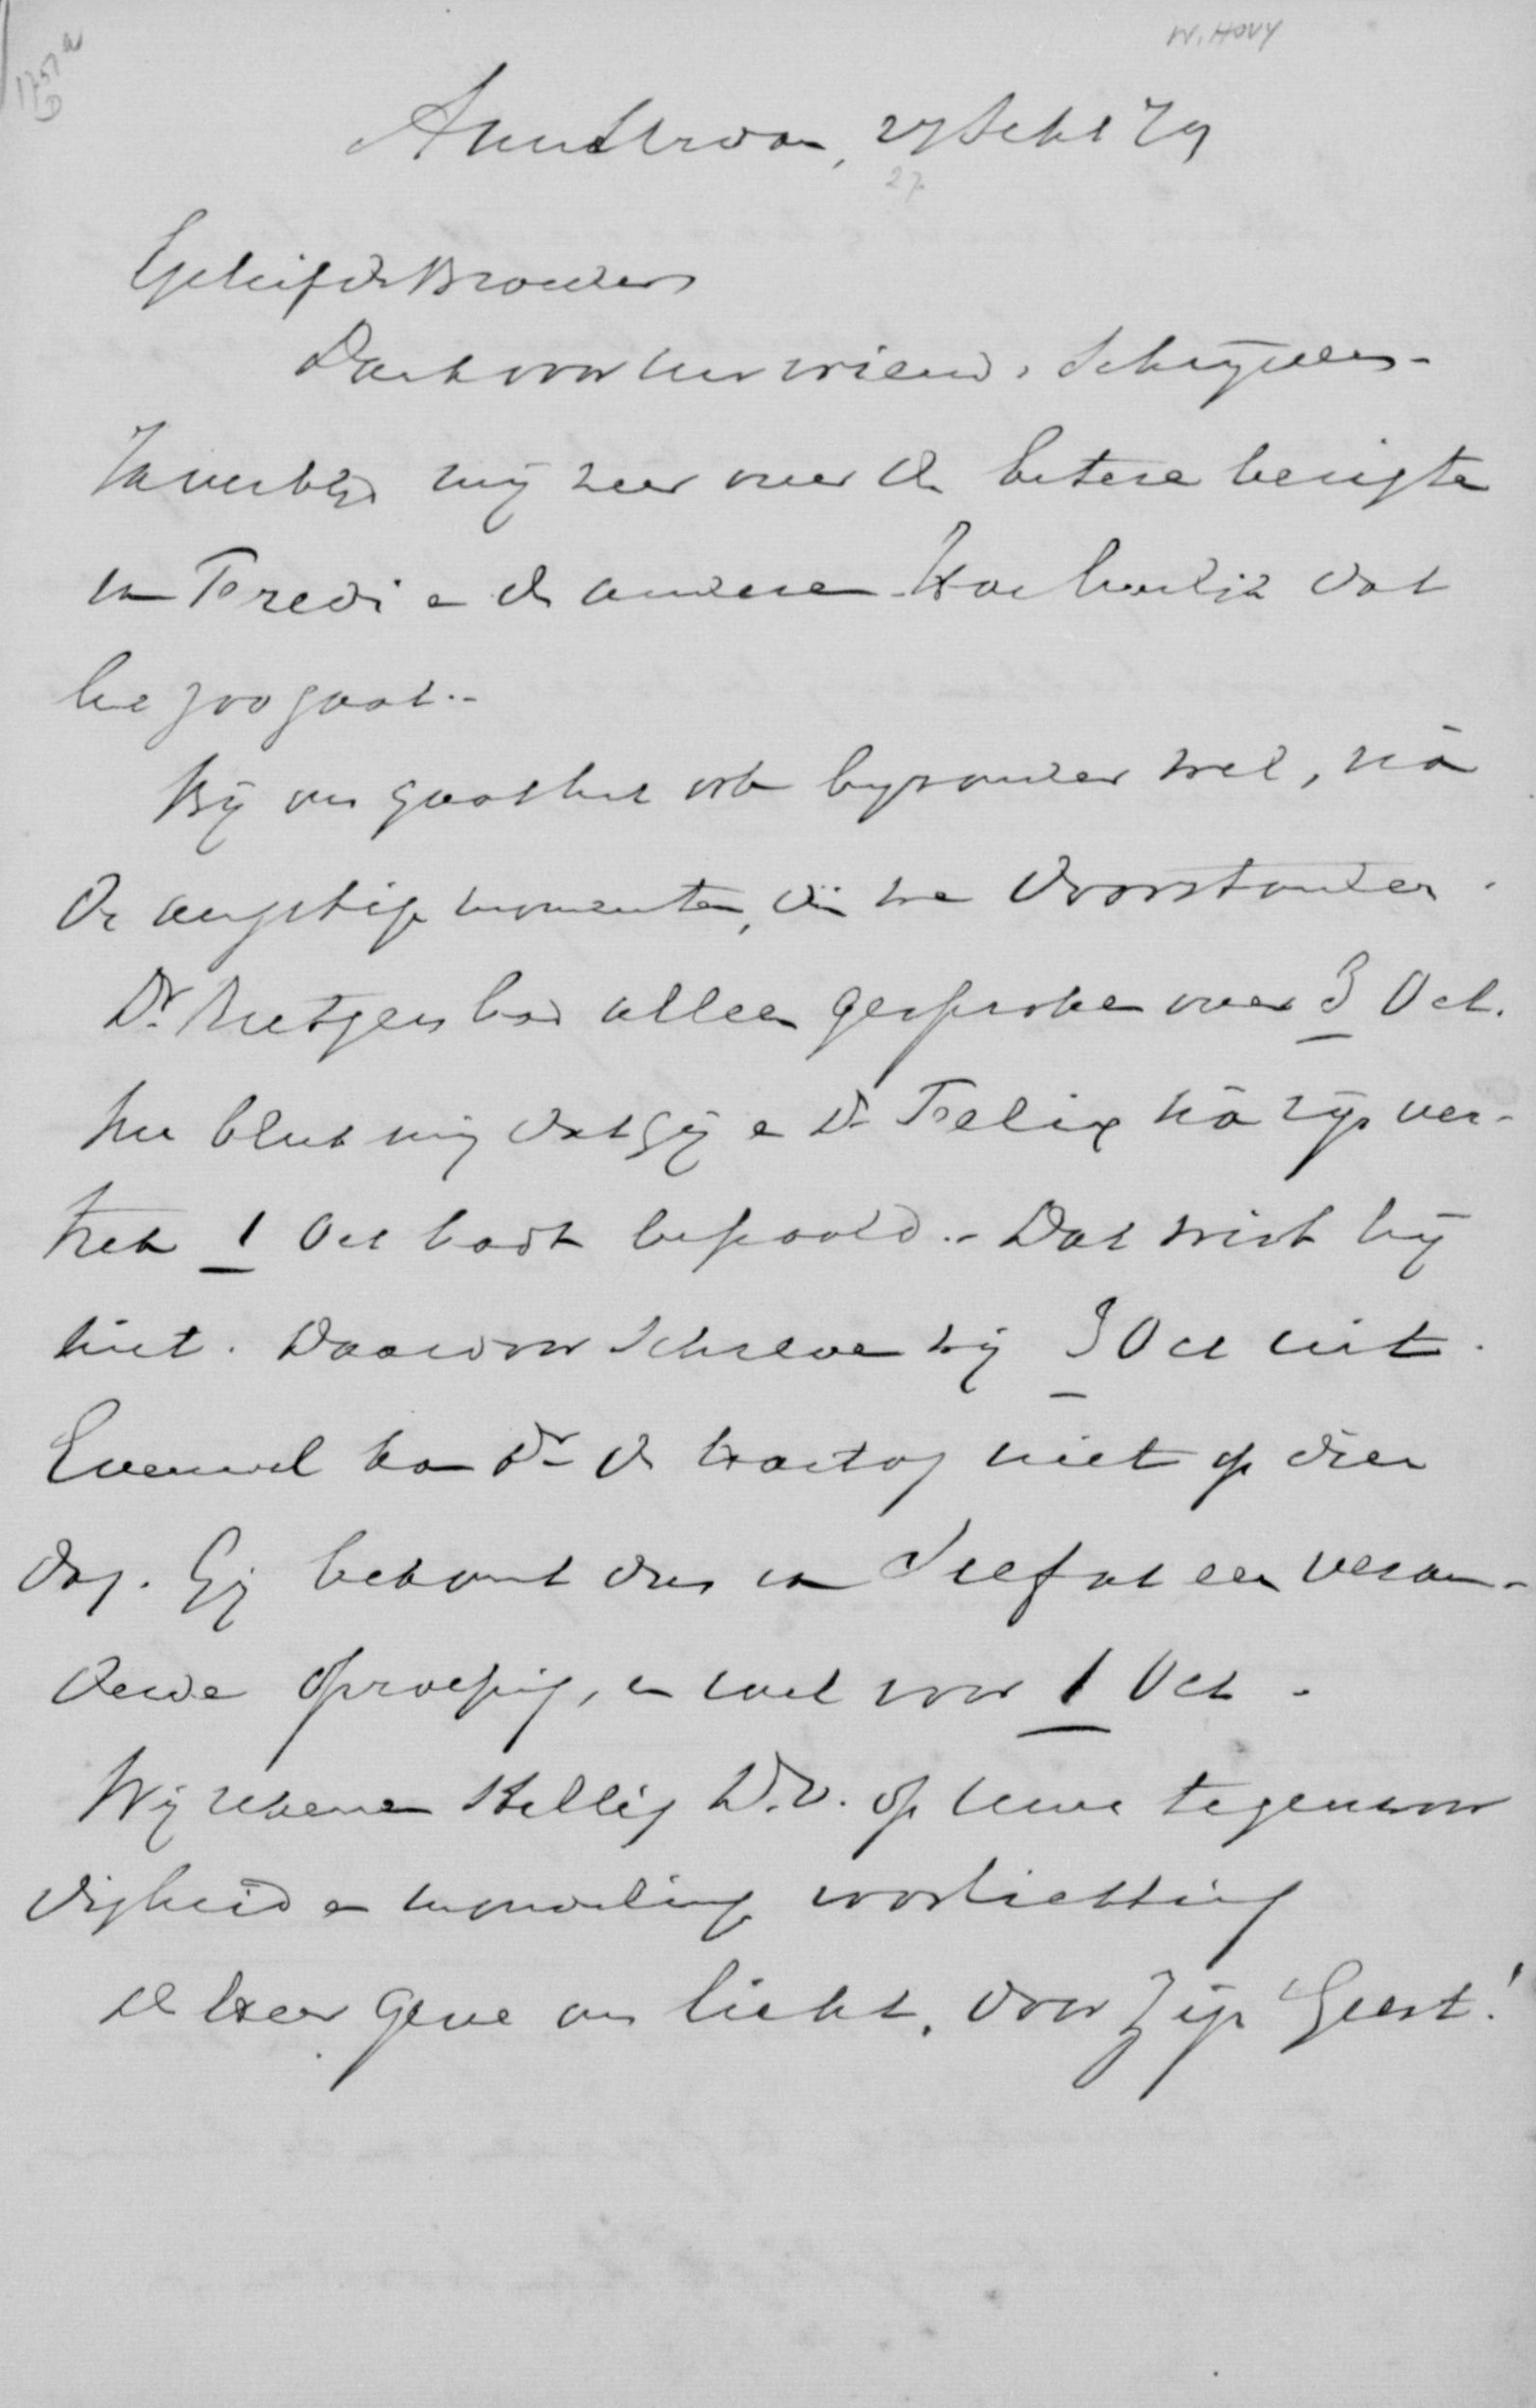 W. HOVY
1757a
D
Amsterdam, 27 Sept 79
27
Geliefde Broeder
Dank voor uw vriend. schrijven.-
'k verblijd mij zeer over de betere berigten
van Fredi en de anderen. Hoe heerlijk dat
het zoo gaat.-
Bij ons gaat het ook byzonder wel, na
de angstige momenten, die we doorstonden.
Dr. Rutgers had alleen gesproken over 3 Oct.
Nu bleek mij dat gij en Dr Felix na zijn ver-
trek 1 Oct hadt bepaald.- Dat wist hij
niet. Daarom schreven wij 3 Oct uit.
Evenwel kan Dr de Hartog niet op dien
dag. Gij bekomt dus van Seefat een veran-
derde oproeping, en wel voor 1 Oct -
Wij rekenen stellig D.V. op uwe tegenwoor
digheid en mondelinge voorlichting
de Heer geve ons licht, door Zijn Geest!